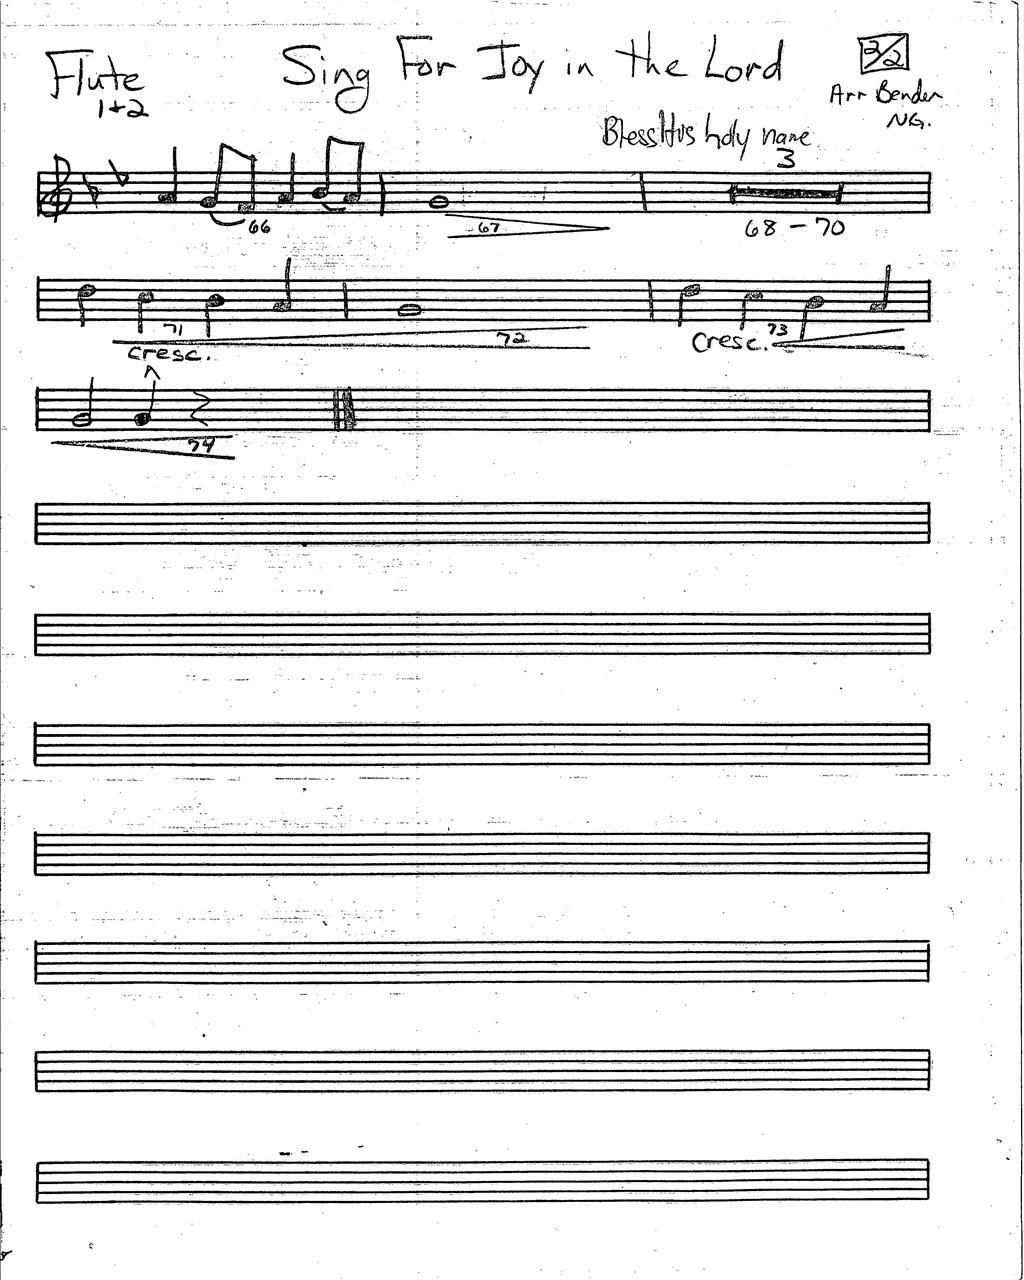 Flute
1+2
Sing For Joy in the Lord
2/2
Arr Bender
NG.
Bless His holy name
3
66
67
68 - 70
71
72
73
cresc.
cresc.
74